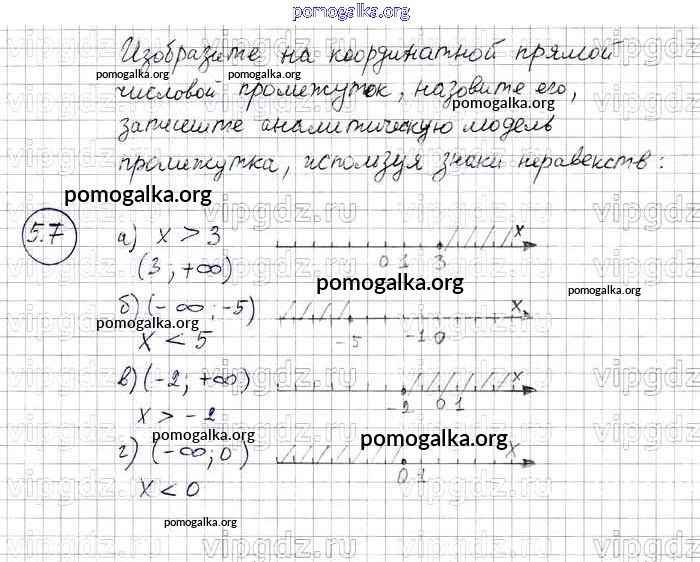 pomogalka.org
Изобразите на координатной прямой
pomogalka.org pomogalka.org
числовой промежуток, назовите его,
pomogalka.org
запишите аналитическую модель
промежутка, используя знаки неравенств:
pomogalka.org
5.7 а) x > 3
x
0 1 3
(3 ; +∞)
pomogalka.org
pomogalka.org
б) (-∞ ; -5)
x
pomogalka.org
x < 5
-5 -1 0
в) (-2; +∞)
x
-2 0 1
x > -2
pomogalka.org pomogalka.org
г) (-∞; 0)
x
0 1
x < 0
pomogalka.org
vipgdz.ru vipgdz.ru vipgdz.ru